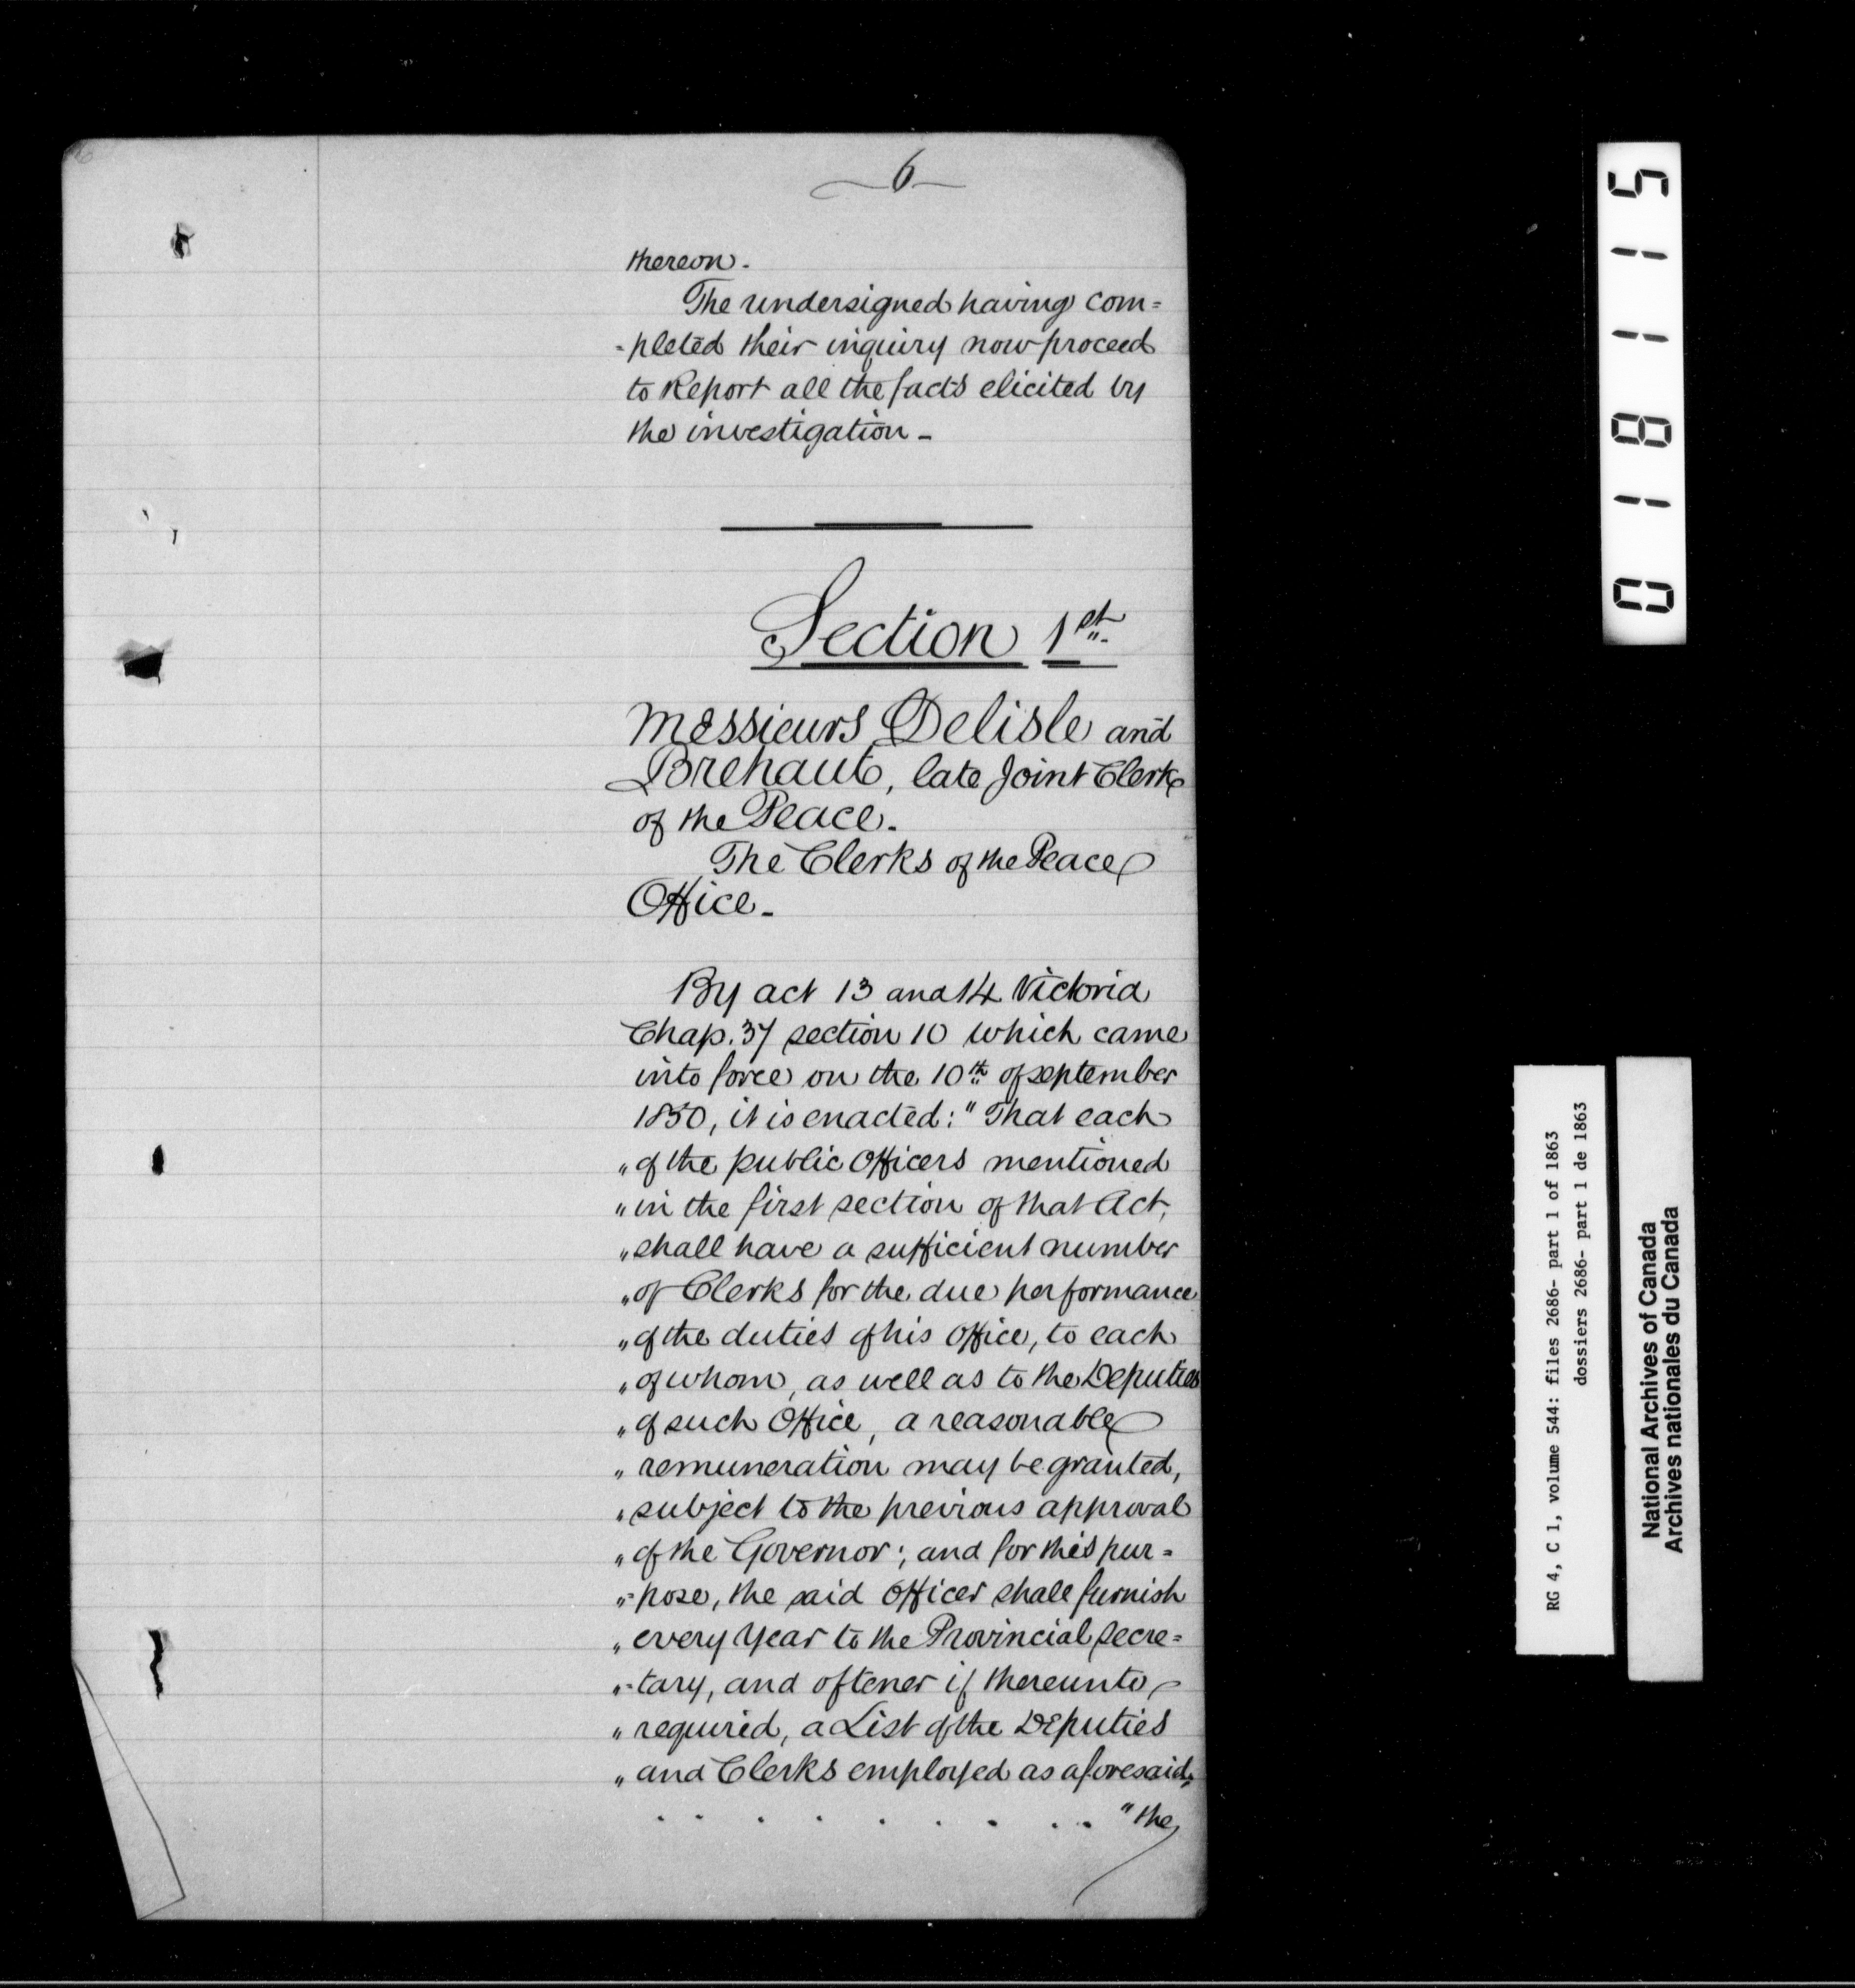 6
thereon.
The undersigned having com=
=pleted their inquiry now proceed
to Report all the facts elicited by
the investigation _
Section 1st.
Messieurs Delisle and
Brehaut, late Joint Clerks
of the Peace.
The Clerks of the Peace
Office.
By act 13 and 14 Victoria
Chap. 37 section 10 which came
into force on the 10th of september
1850, it is enacted: "That each
" of the public Officers mentioned
" in the first section of that Act,
" shall have a sufficient number
" of Clerks for the due performance
" of the duties of his Office, to each
" of whom, as well as to the Deputies
" of such Office, a reasonable
" remuneration may be granted,
" subject to the previous approval
" of the Governor; and for this pur=
"=pose, the said Officer shall furnish
" every Year to the Provincial Secre=
"=tary, and oftener if thereunto
" required, a List of the Deputies
" and Clerks employed as aforesaid,
. . . . . . . . . "the
018115
RG 4, C 1, volume 544: files 2686- part 1 of 1863
dossiers 2686- part 1 de 1863
National Archives of Canada
Archives nationales du Canada